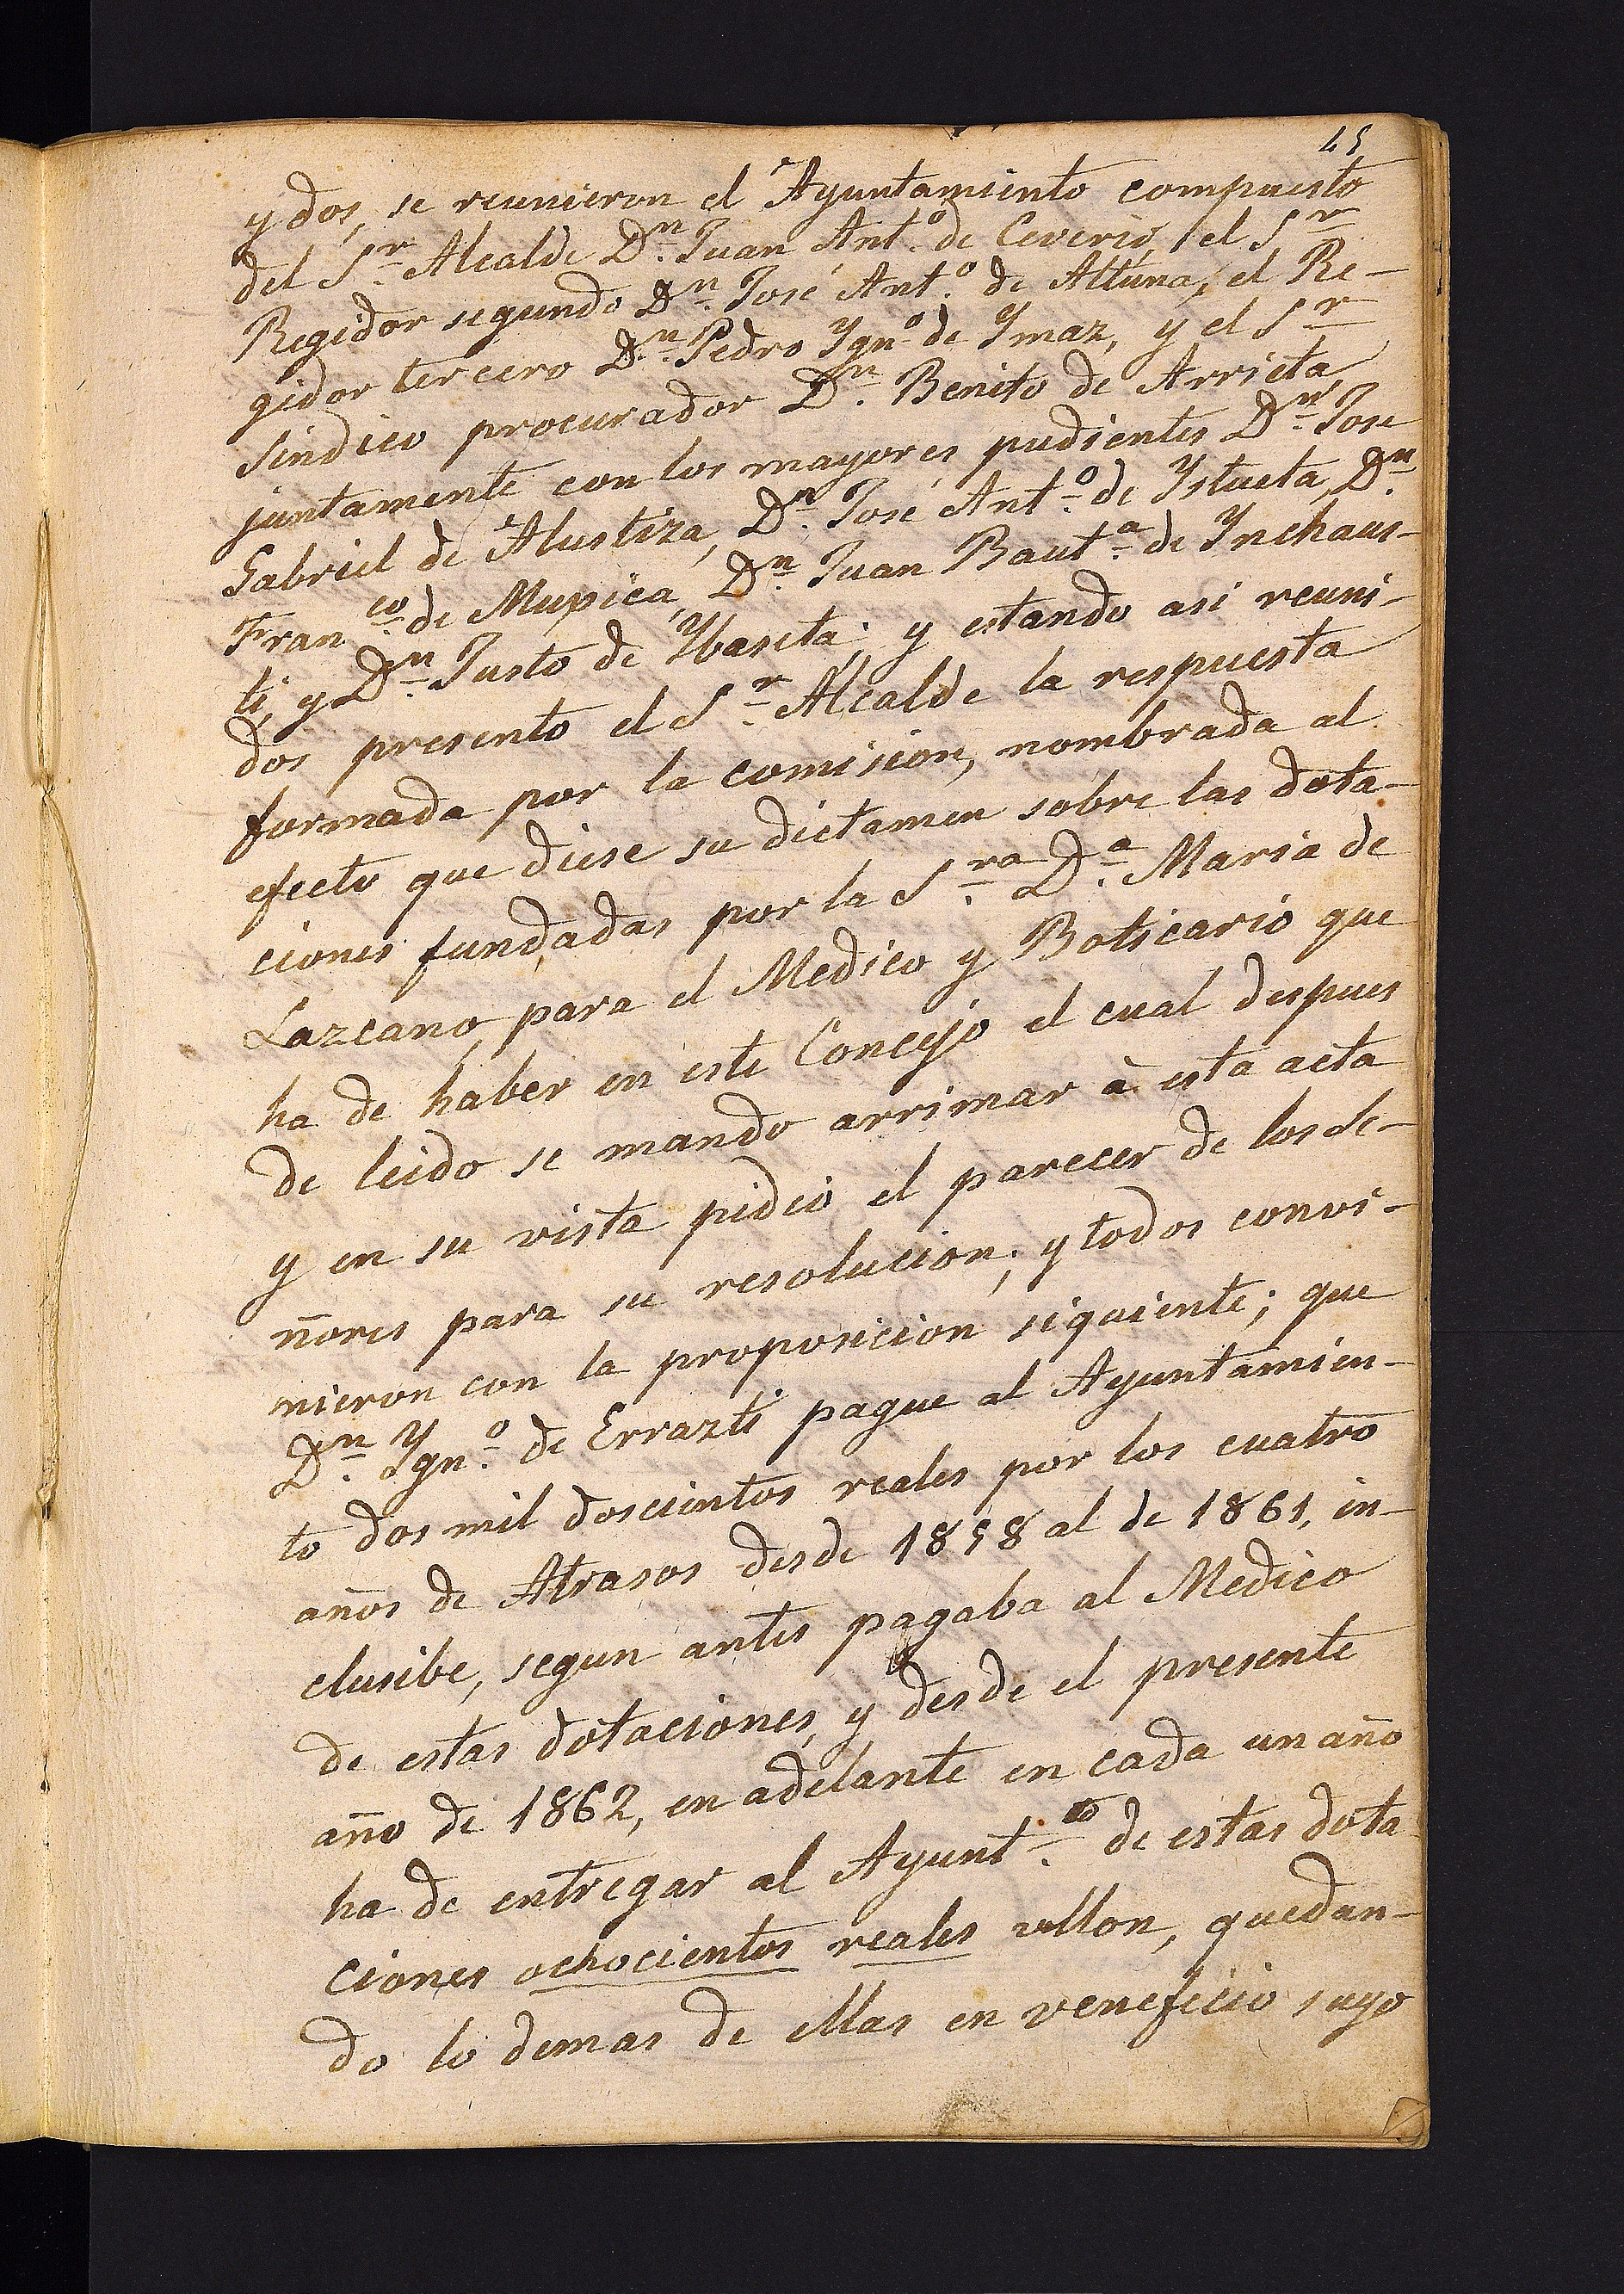 45
y dos, se reunieron el Ayuntamiento compuesto
del S.r Alcalde D.n Juan Ant.o de Ceverio, el S.r
Regidor segundo D.n José Ant.o de Altuna, el Re-
gidor tercero D.n Pedro Ygn.o de Ymaz, y el S.r
Sindico procurador D.n Benito de Arrieta
juntamente con los mayores pudientes D.n José
Gabriel de Alustiza, D.n José Ant.o de Ystueta, D.n
Fran.co de Muxica, D.n Juan Baut.a de Ynchaus-
ti, y D.n Justo de Ybaseta; y estando asi reuni-
dos presento el S.r Alcalde la respuesta
formada por la comision, nombrada al
efecto que diese su dictamen sobre las dota-
ciones fundadas por la S.ra D.a Maria de
Lazcano, para el Medico y Boticario que
ha de haber en este Concejo el cual despues
de leido se mando arrimar à esta acta
y en su vista pidió el parecer de los Se-
ñores para su resolucion; y todos convi-
nieron con la proposicion siguiente; que
D.n Ygn.o de Errazti pague al Ayuntamien-
to dos mil doscientos reales por los cuatro
años de Atrasos desde 1858 al de 1861, in-
clusibe, segun antes pagaba al Medico
de estas dotaciones, y desde el presente
año de 1862, en adelante en cada un año
ha de entregar al Ayunt.to de estas dota
ciones ochocientos reales vellon, quedan-
do lo demas de ellas en veneficio suyo